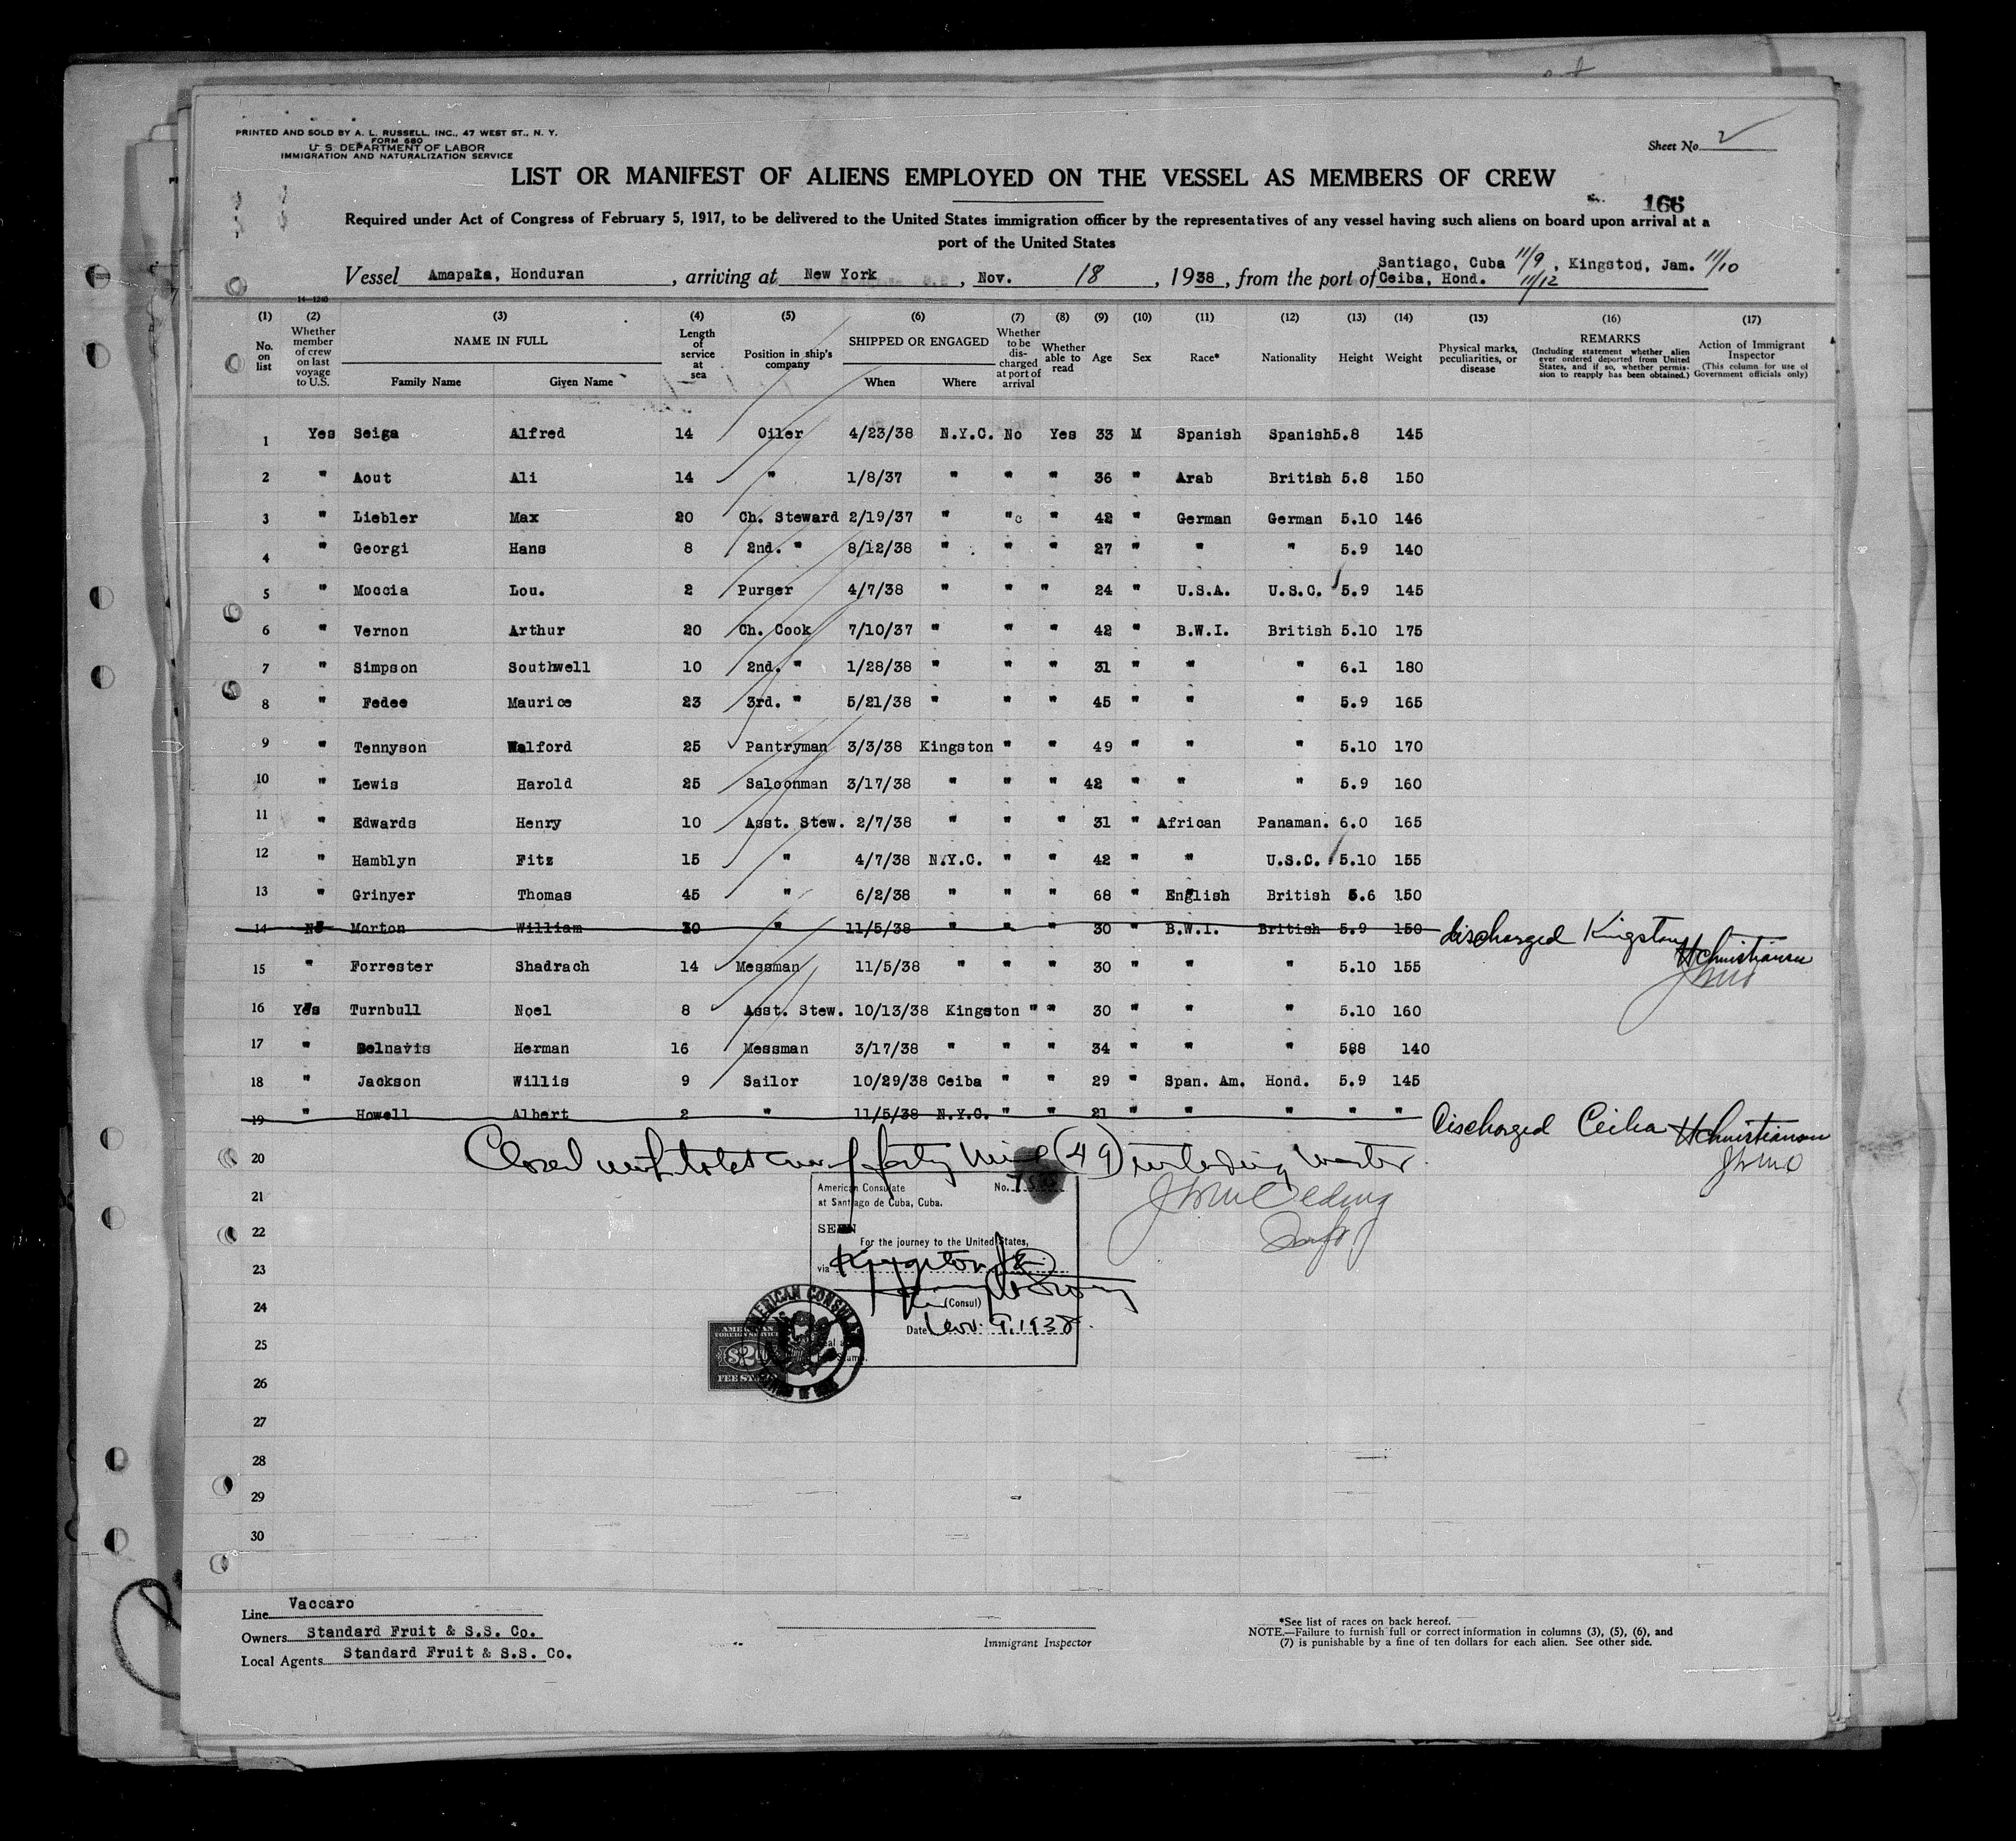 PRINTED AND SOLD BY A. L. RUSSELL, INC., 47 WEST ST., N. Y.
FORM 680
U. S. DEPARTMENT OF LABOR
IMMIGRATION AND NATURALIZATION SERVICE
Sheet No. 2
LIST OR MANIFEST OF ALIENS EMPLOYED ON THE VESSEL AS MEMBERS OF CREW
166
Required under Act of Congress of February 5, 1917, to be delivered to the United States immigration officer by the representatives of any vessel having such aliens on board upon arrival at a
port of the United States
Vessel Amapala, Honduran, arriving at New York, Nov. 18, 1938, from the port of Santiago, Cuba 11/9, Kingston, Jam. 11/10
Ceiba, Hond. 11/12
14—1240
(1) (2) (3) (4) (5) (6) (7) (8) (9) (10) (11) (12) (13) (14) (15) (16) (17)
No. on list
Whether member of crew on last voyage to U.S.
NAME IN FULL
Family Name Given Name
Length of service at sea
Position in ship's company
SHIPPED OR ENGAGED
When Where
Whether to be discharged at port of arrival
Whether able to read
Age Sex Race* Nationality Height Weight
Physical marks, peculiarities, or disease
REMARKS
(Including statement whether alien ever ordered deported from United States, and if so, whether permission to reapply has been obtained.)
Action of Immigrant Inspector
(This column for use of Government officials only)
1 Yes Seiga Alfred 14 Oiler 4/23/38 N.Y.C. No Yes 33 M Spanish Spanish 5.8 145
2 " Aout Ali 14 " 1/8/37 " " " 36 " Arab British 5.8 150
3 " Liebler Max 20 Ch. Steward 2/19/37 " " " 42 " German German 5.10 146
4 " Georgi Hans 8 2nd. " 8/12/38 " " " 27 " " " 5.9 140
5 " Moccia Lou. 2 Purser 4/7/38 " " " 24 " U.S.A. U.S.C. 5.9 145
6 " Vernon Arthur 20 Ch. Cook 7/10/37 " " " 42 " B.W.I. British 5.10 175
7 " Simpson Southwell 10 2nd. " 1/28/38 " " " 31 " " " 6.1 180
8 " Fedee Maurice 23 3rd. " 5/21/38 " " " 45 " " " 5.9 165
9 " Tennyson Walford 25 Pantryman 3/3/38 Kingston " " 49 " " " 5.10 170
10 " Lewis Harold 25 Saloonman 3/17/38 " " " 42 " " " 5.9 160
11 " Edwards Henry 10 Asst. Stew. 2/7/38 " " " 31 " African Panaman. 6.0 165
12 " Hamblyn Fitz 15 " 4/7/38 N.Y.C. " " 42 " " U.S.C. 5.10 155
13 " Grinyer Thomas 45 " 6/2/38 " " " 68 " English British 5.6 150
14 No Morton William 30 " 11/5/38 " " " 30 " B.W.I. British 5.9 150 discharged Kingston HChristiansen
15 " Forrester Shadrach 14 Messman 11/5/38 " " " 30 " " " 5.10 155
16 Yes Turnbull Noel 8 Asst. Stew. 10/13/38 Kingston " " 30 " " " 5.10 160
17 " Delnavis Herman 16 Messman 3/17/38 " " " 34 " " " 588 140
18 " Jackson Willis 9 Sailor 10/29/38 Ceiba " " 29 " Span. Am. Hond. 5.9 145
19 " Howell Albert 2 " 11/5/38 N.Y.C. " " 21 " " " " " Discharged Ceiba HChristiansen
20 Closed with total crew of forty nine (49) including master.
21
22
23
24
25
26
27
28
29
30
American Consulate No.
at Santiago de Cuba, Cuba.
SEEN
For the journey to the United States,
via Kingston
(Consul)
Date Nov. 9, 1938.
AMERICAN CONSULATE
AMERICAN
FOREIGN SERVICE
$2
FEE STAMP
Line Vaccaro
Owners Standard Fruit & S.S. Co.
Local Agents Standard Fruit & S.S. Co.
Immigrant Inspector
*See list of races on back hereof.
NOTE.—Failure to furnish full or correct information in columns (3), (5), (6), and
(7) is punishable by a fine of ten dollars for each alien. See other side.